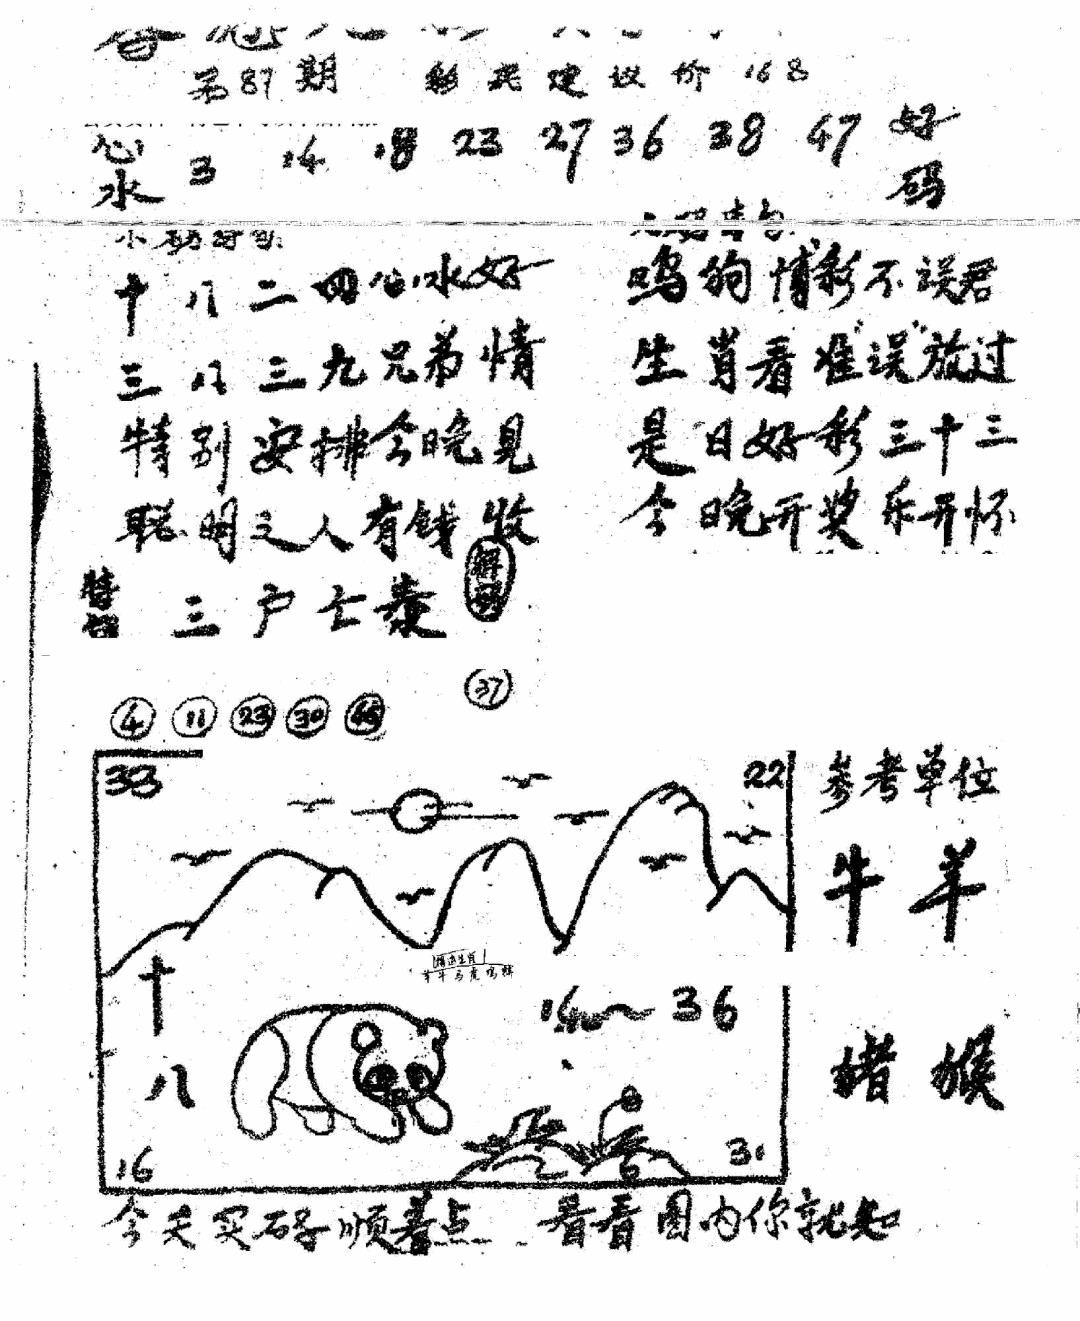 第87期 彩民建议价168
心水 3 14 18 23 27 36 38 47 好码
十八二四心水好
三八三九兄弟情
特别安排今晚见
聪明之人有钱收
三户亡秦
鸣狗博彩不误君
生肖看准"误"放过
是日好彩三十三
今晚开奖乐开怀
37
4 11 23 30 46
33 22
参考单位
牛 羊
精选生肖
十八
14~36
猪 猴
16 31
今天买码子顺着点 看看图内你就知